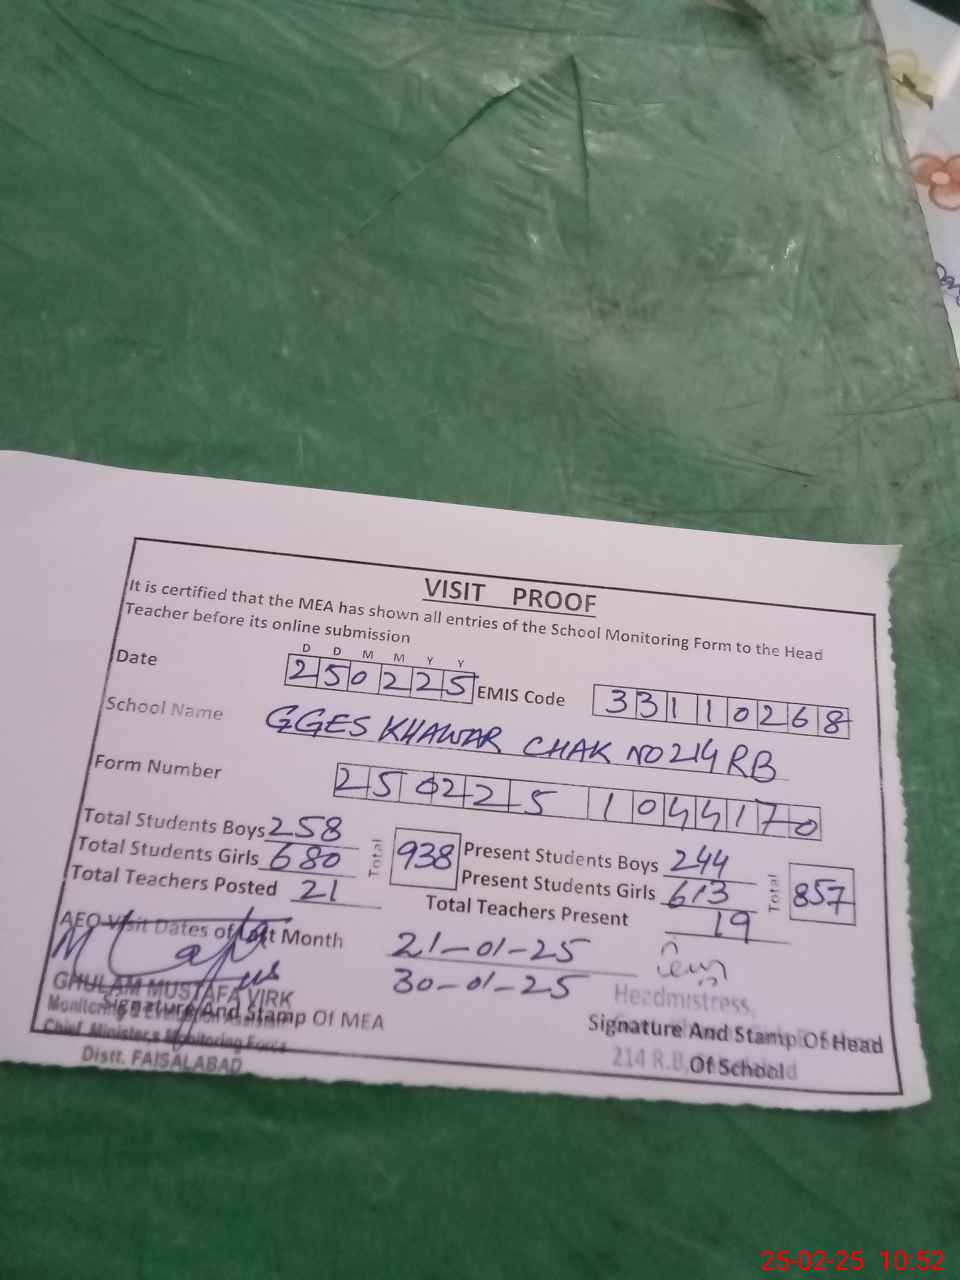 VISIT PROOF
It is certified that the MEA has shown all entries of the School Monitoring Form to the Head
Teacher before its online submission
D D M M Y Y
Date 250225 EMIS Code 33110268
School Name GGES KHAWAR CHAK NO 214 RB
Form Number 250225 1044170
Total Students Boys 258
Total Students Girls 680
Total 938
Present Students Boys 244
Present Students Girls 613
Total 857
Total Teachers Posted 21
Total Teachers Present 19
AEO Visit Dates of Last Month 21-01-25
30-01-25
GHULAM MUSTAFA VIRK
Monitoring & Evaluation Assistant
Signature And Stamp Of MEA
Chief Minister's Monitoring Force
Distt. FAISALABAD
Headmistress,
Signature And Stamp Of Head
214 R.B,
Of School
25-02-25 10:52